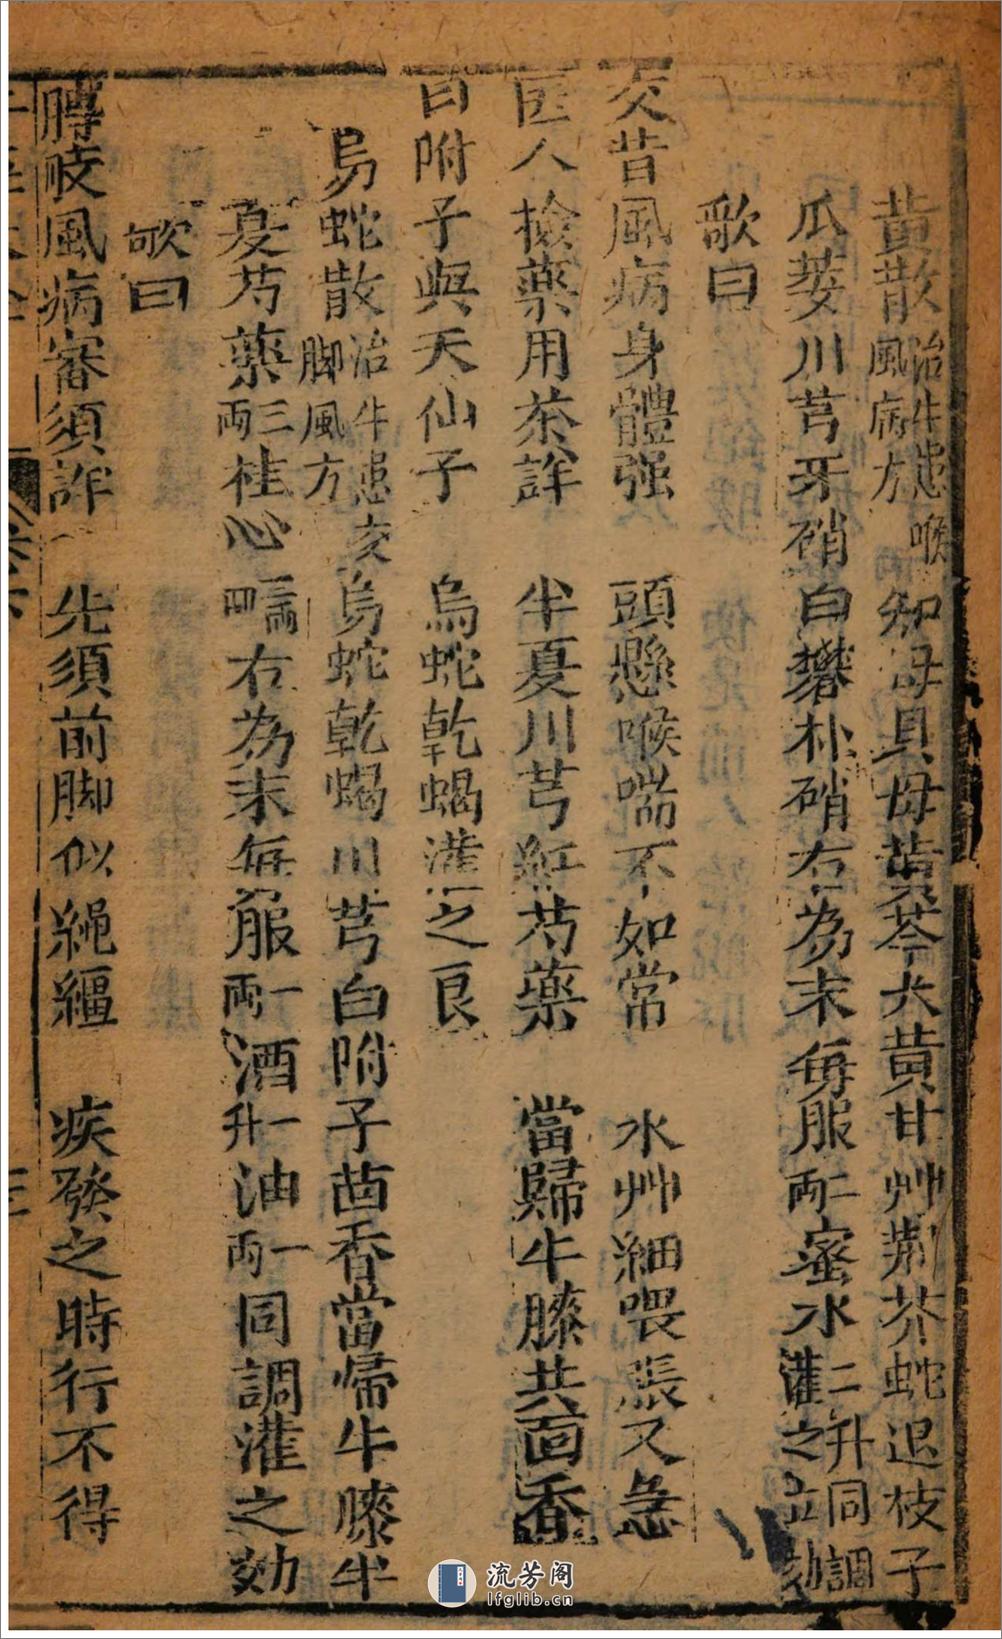 黄散治牛患喉風病方知母貝母黄芩大黄甘艸荆芥蛇退枝子
瓜蔞川芎牙硝白礬朴硝右為末每服二兩蜜水二升同調灌之立効
歌曰
交昔風病身體强 頭懸喉喘不如常 水艸細喂脹又急
匠人撿藥用茶詳 半夏川芎紅芍藥 當歸牛膝共茴香
白附子與天仙子 烏蛇乾蝎灌之良
烏蛇散治牛患交脚風方烏蛇乾蝎川芎白附子茴香當帰牛膝半
夏芍藥三兩桂心四兩右為末每服一兩酒一升油一兩同調灌之効
歌曰
膊岐風病審須詳 先須前脚似繩繮 疾發之時行不得
流芳阁
lfglib.cn